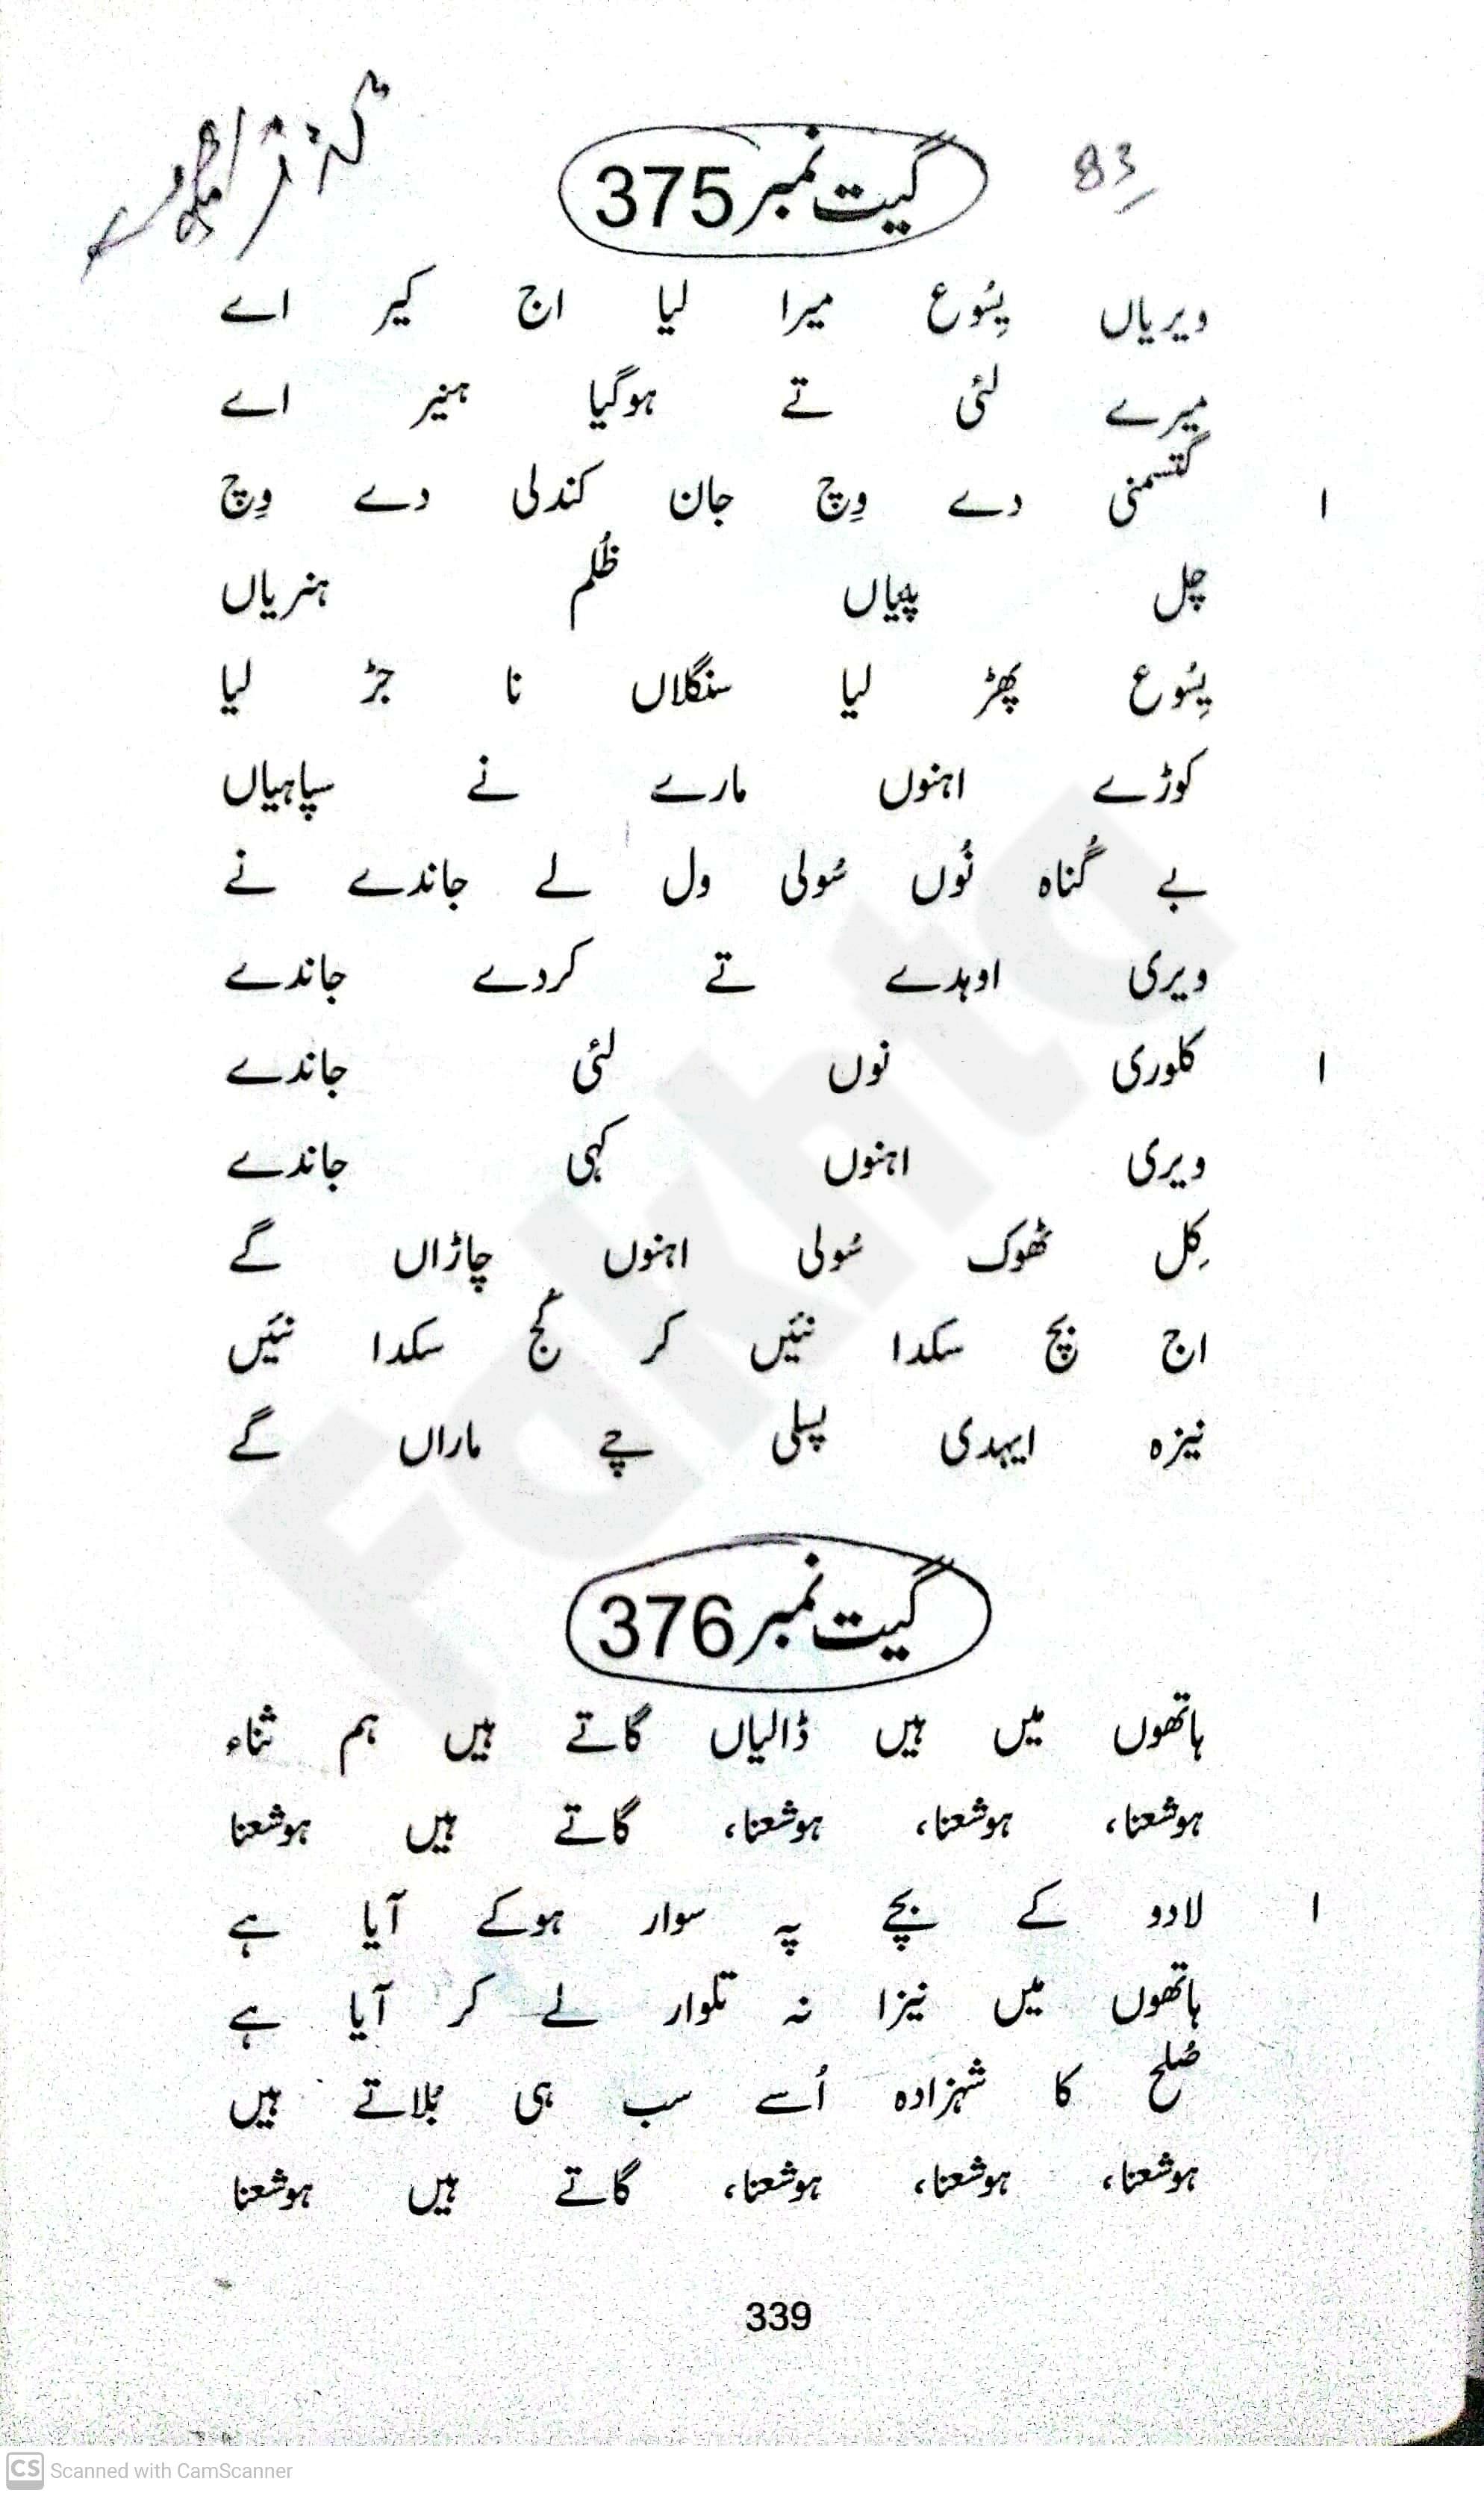 83
گیت نمبر 375
ویریاں یسُوع میرا لیا اج کیر اے
میرے لئی تے ہوگیا ہنیر اے
۱ گتسمنی دے وِچ جان کندلی دے وِچ
چل پیّاں ظُلم ہنریاں
یسُوع پھَڑ لیا سنگلاں نا جڑ لیا
کوڑے اہنوں مارے نے سپاہیاں
بے گُناہ نُوں سُولی ول لے جاندے نے
ویری اوہدے تے کردے جاندے
۱ کلوری نوں لئی جاندے
ویری اہنوں کہی جاندے
کِل ٹھوک سُولی اہنوں چاڑاں گے
اج بچ سکدا نئیں کر کُج سکدا نئیں
نیزہ ایہدی پسلی چے ماراں گے
گیت نمبر 376
ہاتھوں میں ہیں ڈالیاں گاتے ہیں ہم ثناء
ہوشعنا، ہوشعنا، ہوشعنا، گاتے ہیں ہوشعنا
۱ لادو کے بچے پہ سوار ہوکے آیا ہے
ہاتھوں میں نیزا نہ تلوار لے کر آیا ہے
صُلح کا شہزادہ اُسے سب ہی بُلاتے ہیں
ہوشعنا، ہوشعنا، ہوشعنا، گاتے ہیں ہوشعنا
339
Fakhta
CS Scanned with CamScanner